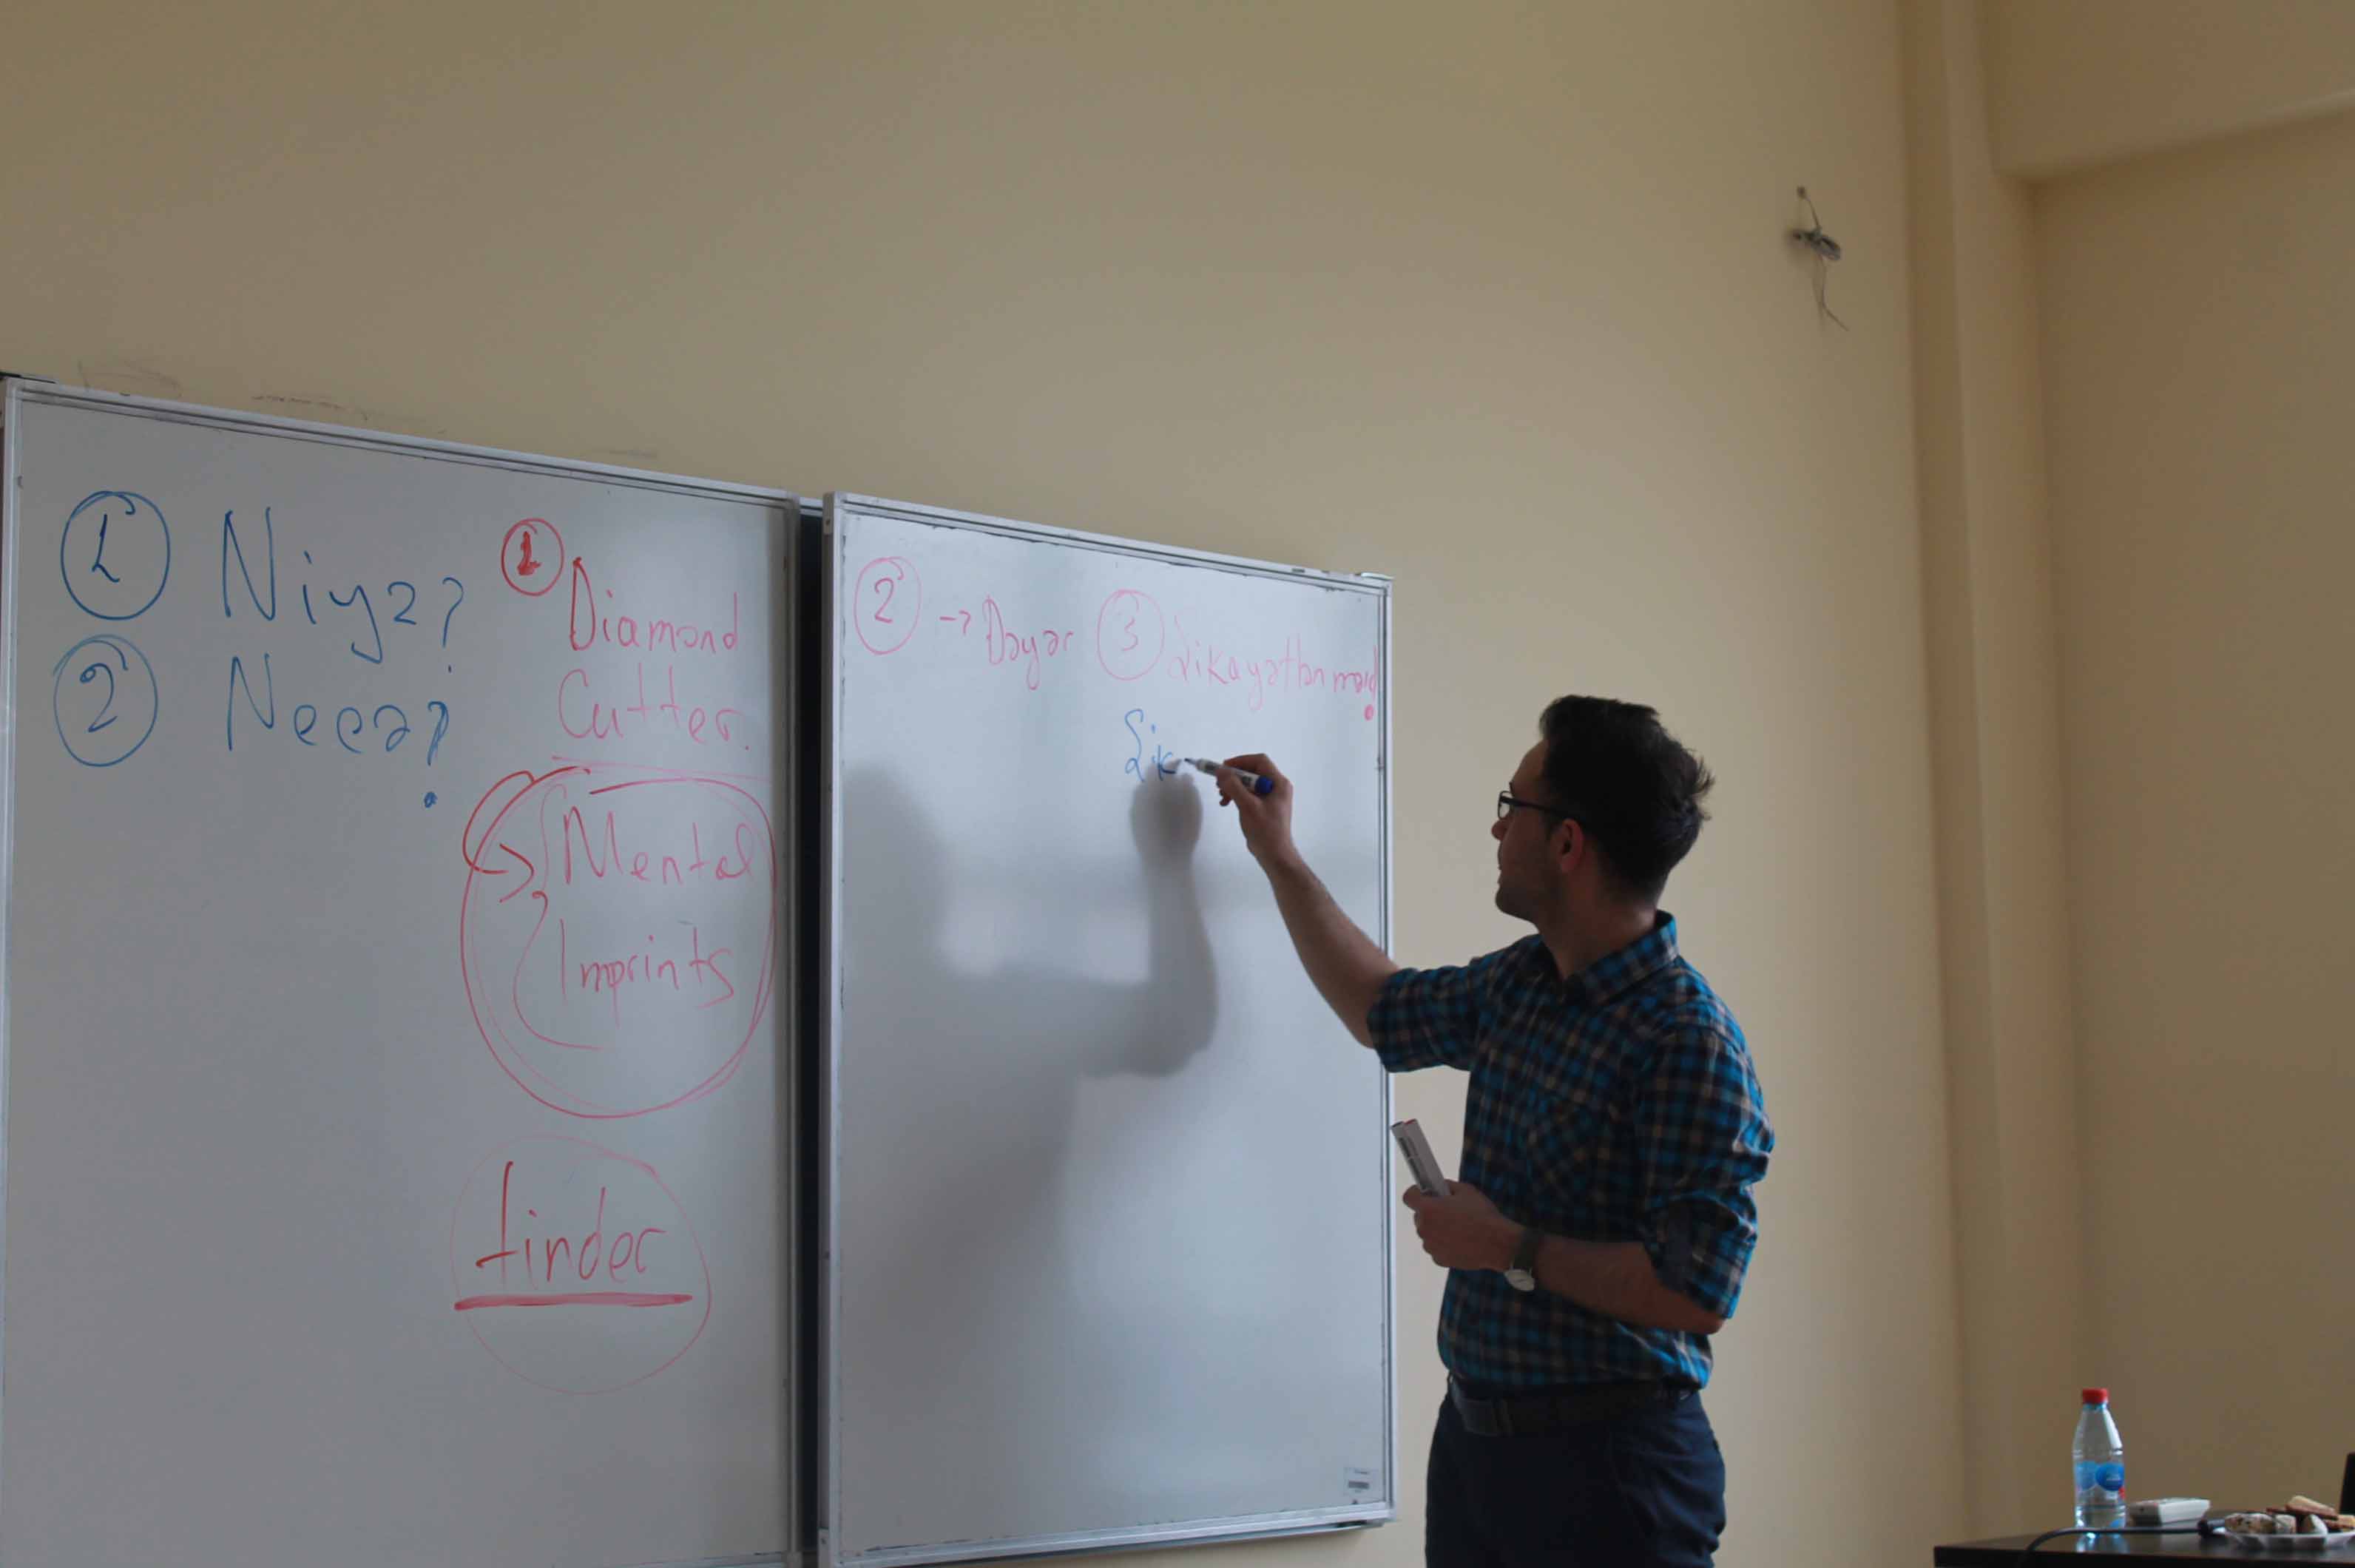 ① Niyə?
② Necə?
① Diamond
Cutter.
Mental
Imprints
tinder
② → Dəyər
③ Şikayətlənmə!
Şik